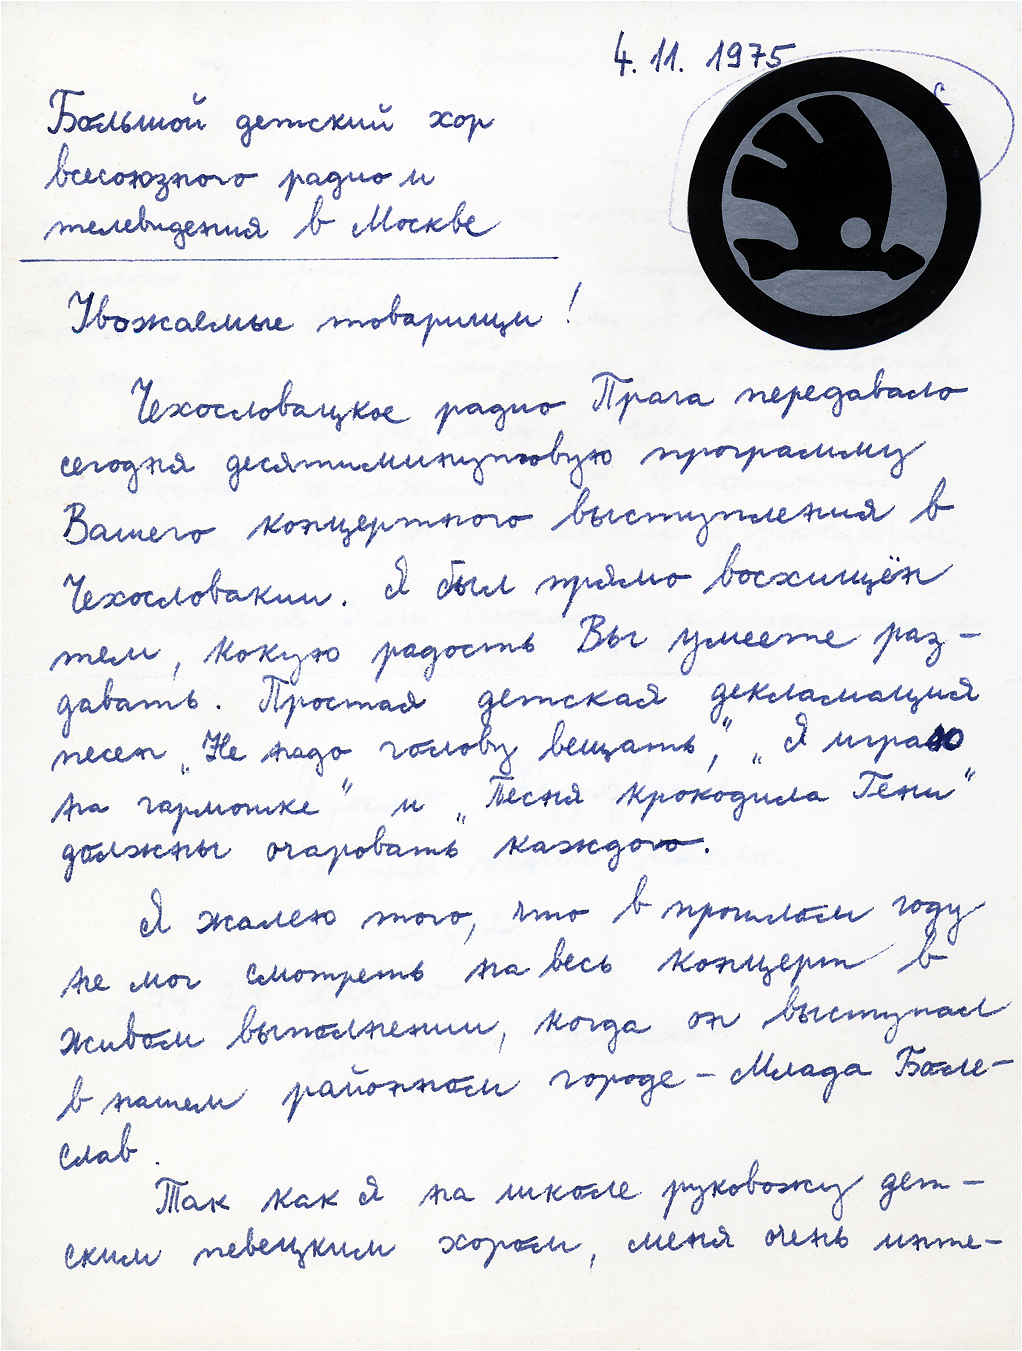 4. 11. 1975
Большой детский хор
всесоюзного радио и
телевидения в Москве
Уважаемые товарищи!
Чехословацкое радио Прага передавало
сегодня десятиминутовую программу
Вашего концертного выступления в
Чехословакии. Я был прямо восхищён
тем, какую радость Вы умеете раз-
давать. Простая детская декламация
песен „Не надо голову вещать”, „Я играю
на гармошке” и „Песня крокодила Гени”
должны очаровать каждого.
Я жалею того, что в прошлом году
не мог смотреть на весь концерт в
живом выполнении, когда он выступал
в нашем районном городе – Млада Боле-
слав.
Так как я на школе руковожу дет-
ским певецким хором, меня очень инте-